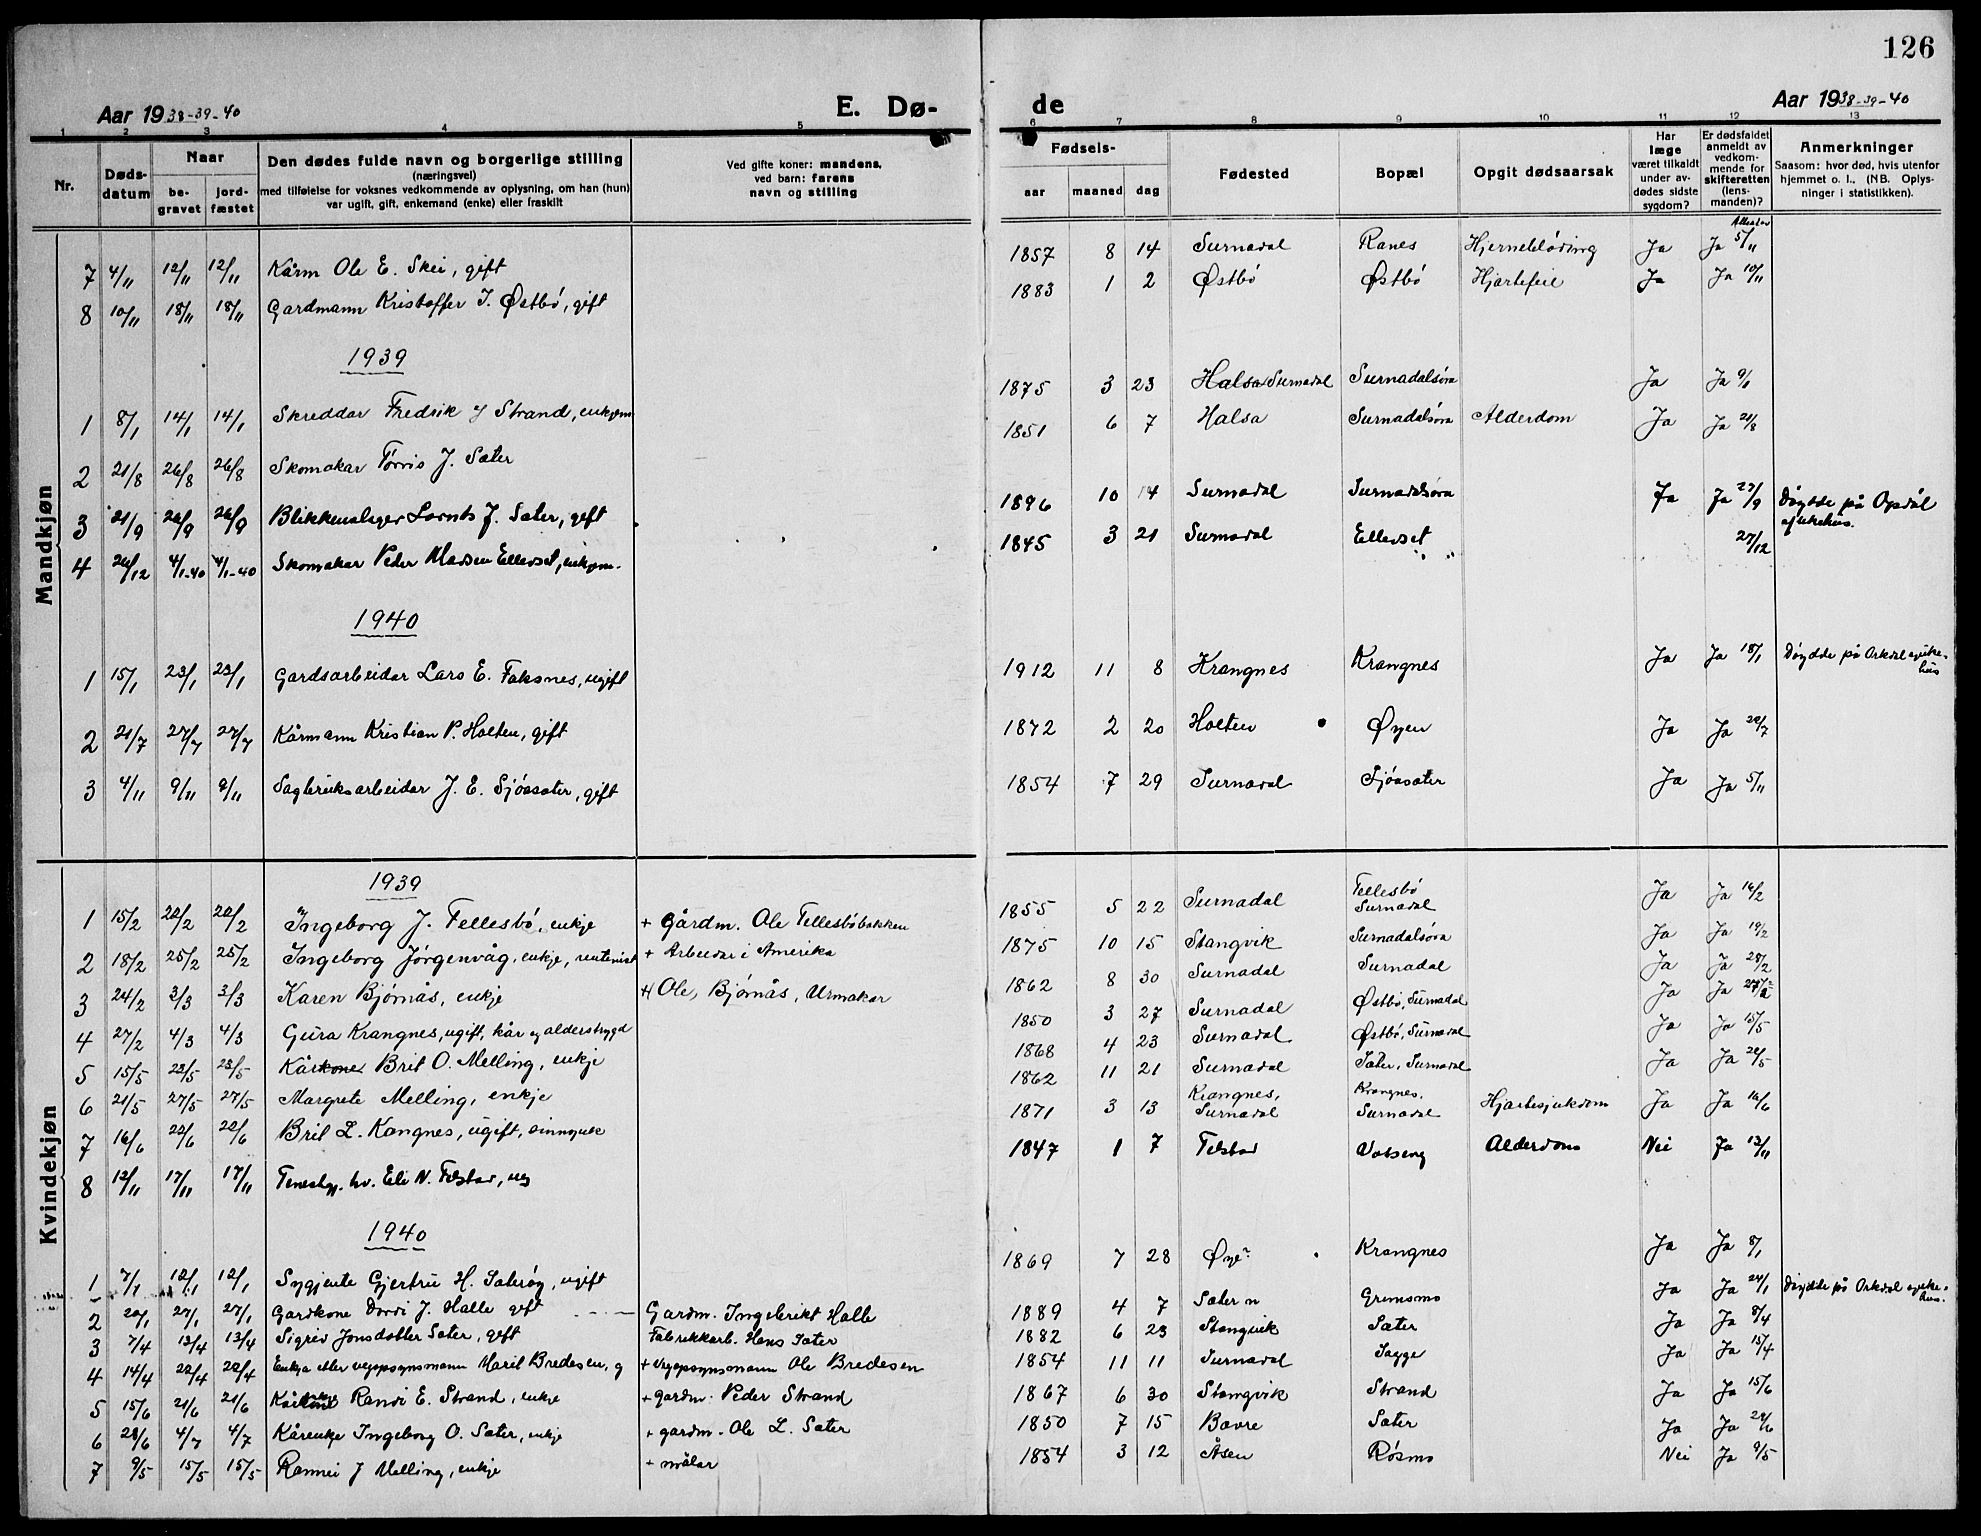 126
Aar 1938-39-40 E. Dø- de Aar 1938-39-40
1 2 3 4 5 6 7 8 9 10 11 12 13
Nr. Dødsdatum Naar begravet jordfæstet
Den dødes fulde navn og borgerlige stilling
(næringsvei)
med tilføielse for voksnes vedkommende av oplysning, om han (hun)
var ugift, gift, enkemand (enke) eller fraskilt
Ved gifte koner: mandens,
ved barn: farens
navn og stilling
Fødsels- aar maaned dag
Fødested
Bopæl
Opgit dødsaarsak
Har læge været tilkaldt under avdødes sidste sygdom?
Er dødsfaldet anmeldt av vedkommende for skifteretten (lensmanden)?
Anmerkninger
Saasom: hvor død, hvis utenfor hjemmet o. l., (NB. Oplysninger i statistikken).
Mandkjøn
7 4/11 12/11 12/11 Kårm Ole E. Skei, gift 1857 8 14 Surnadal Ranes Hjerneblöding Ja Ja 5/11
8 10/11 18/11 18/11 Gardmann Kristoffer J. Østbö, gift 1883 1 2 Østbö Østbö Hjartefeil Ja Ja 10/11
1939
1 8/1 14/1 14/1 Skreddar Fredrik Strand, enkjem 1875 3 23 Halsa/Surnadal Surnadalsöra Ja Ja 9/1
2 21/8 26/8 26/8 Skomakar Torris J. Sæter 1851 6 7 Halsa Surnadalsöra Alderdom Ja Ja 21/8
3 21/9 26/9 26/9 Blikkenslager Lornts J. Sæter, gift 1896 10 14 Surnadal Surnadalsöra Ja Ja 23/9 Döydde på Opdal sjukehus.
4 26/12 4/1-40 4/1-40 Skomakar Peder Madsen Ellevset, enkjem. 1845 3 21 Surnadal Ellevset " " 27/12
1940
1 15/1 23/1 23/1 Gardsarbeidar Lars E. Faksnes, ugift 1912 11 8 Krangnes Krangnes Ja Ja 18/1 Döydde på Orkdal sjukehus
2 21/7 27/7 27/7 Kårmann Kristian P. Holten, gift 1872 2 20 Holten Øyen Ja Ja 22/7
3 4/11 9/11 9/11 Sagbruksarbeidar J. E. Sjöasæter, gift 1854 7 29 Surnadal Sjöasæter Ja Ja 5/11
Kvindekjøn
1939
1 15/2 22/2 22/2 Ingeborg J. Tellesbö, enkje + Gårdm. Ole Tellesböbakken 1855 5 22 Surnadal Tellesbö Surnadal Ja Ja 16/2
2 18/2 25/2 25/2 Ingeborg Jörgenvåg, enkje, rentenist + Arbeidar i Amerika 1875 10 15 Stangvik Surnadalsöra Ja Ja 19/2
3 24/2 3/3 3/3 Karen Björnås, enkje + Ole Björnås, Urmakar 1862 8 30 Surnadal Surnadal Ja Ja 28/2
4 27/2 4/3 4/3 Gura Krangnes, ugift, kår og alderstrygd 1850 3 27 Surnadal Østbö, Surnadal Ja Ja
5 15/5 23/5 23/5 Kårkone Brit O. Melling, enkje 1868 4 23 Surnadal Østbö, Surnadal Ja Ja 15/5
6 21/5 27/5 27/5 Margrete Melling, enkje 1862 11 21 Surnadal Sæter, Surnadal Ja Ja 22/5
7 16/6 22/6 22/6 Brit L. Kangnes, ugift, sinnsjuk 1871 3 13 Krangnes, Surnadal Krangnes, Surnadal Hjartesjukdom Ja Ja 16/6
8 12/11 17/11 17/11 Eli N. Telstad, ug 1847 1 7 Telstad Alderdom Nei Ja 13/11
1940
1 7/1 12/1 12/1 Sygjente Gjertru H. Sæteröy, ugift 1869 7 28 Øye Krangnes Ja Ja 8/1
2 20/1 27/1 27/1 Gardkone Dordi J. Halle gift Gardm. Ingebrikt Halle 1889 4 7 Sæter n Grimsmo Ja Ja 24/1 Döydde på Orkdal sjukehus.
3 7/4 13/4 13/4 Sigrid Jonsdotter Sæter, gift Fabrikkarb. Hans Sæter 1882 6 23 Stangvik Sæter Ja Ja 8/4
4 14/4 22/4 22/4 Enkja etter vegoppsynsmann Marit Bredesen, g + Vegoppsynsmann Ole Bredesen 1854 11 11 Surnadal Sagge Ja Ja 15/4
5 15/6 21/6 21/6 Randi E. Strand, enkje + gardm. Peder Strand 1867 6 30 Stangvik Strand Ja Ja 15/6
6 28/6 4/7 4/7 Kårenkje Ingeborg O. Sæter, enkje + gardm. Ole L. Sæter 1850 7 15 Bævre Sæter Ja Ja 29/6
7 9/5 15/5 15/5 Rannei J Melling, enkje + målar 1854 3 12 Åsen Røsmo Nei Ja 9/5